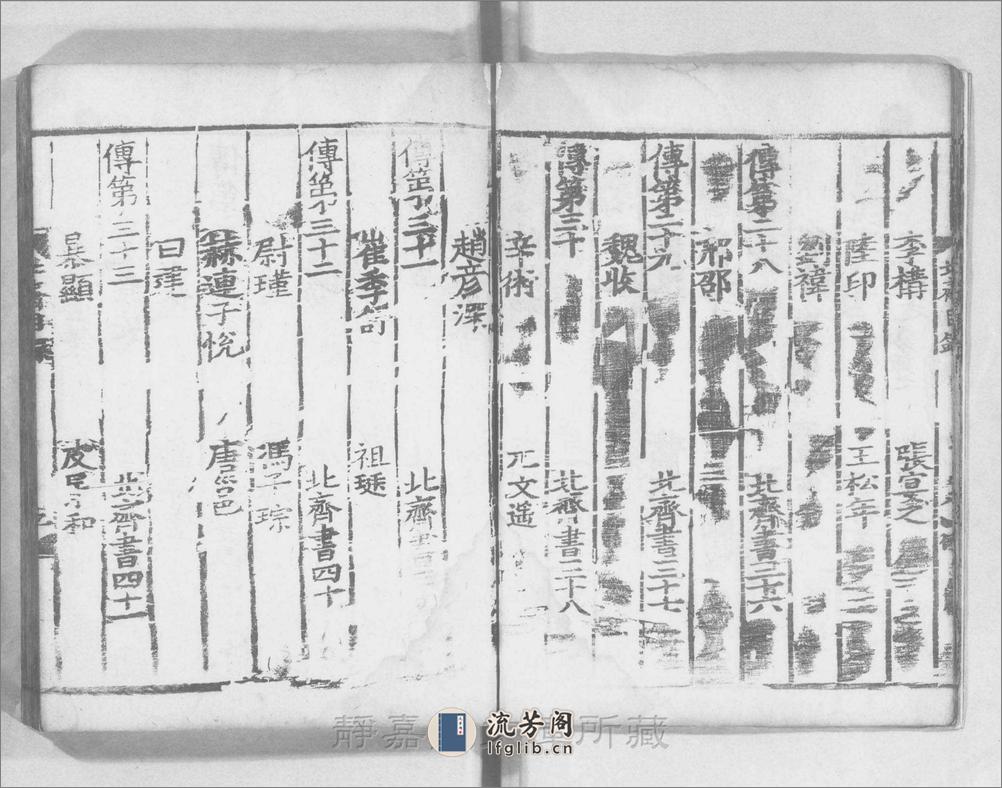 李構 張宣之
陸印 王松年
劉禕
傳第二十八 北齊書三十六
邢邵
傳第二十九 北齊書三十七
魏收
傳第三十 北齊書三十八
辛術 元文遥
趙彦深
傳第三十一 北齊書
崔季 祖珽
傳第三十二 北齊書四十
尉瑾 馮子琮
赫連子悅 唐邕
白建
傳第三十三 北齊書四十一
暴顯 皮 和
靜嘉 所藏
流芳阁
lfglib.cn